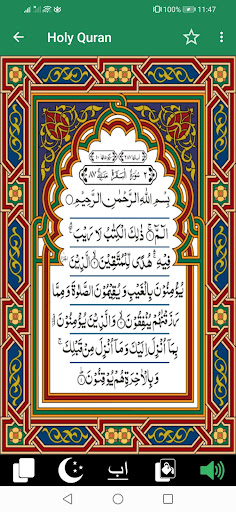 100% 11:47
Holy Quran
٢ سُوْرَةُ الْبَقَرَةِ مَدَنِيَّةٌ ٨٧
بِسْمِ اللهِ الرَّحْمٰنِ الرَّحِيْمِ
الٓمّٓ ذٰلِكَ الْكِتٰبُ لَا رَيْبَ
فِيْهِ هُدًى لِّلْمُتَّقِيْنَ الَّذِيْنَ
يُؤْمِنُوْنَ بِالْغَيْبِ وَيُقِيْمُوْنَ الصَّلٰوةَ وَمِمَّا
رَزَقْنٰهُمْ يُنْفِقُوْنَ وَالَّذِيْنَ يُؤْمِنُوْنَ
بِمَآ اُنْزِلَ اِلَيْكَ وَمَآ اُنْزِلَ مِنْ قَبْلِكَ
وَبِالْاٰخِرَةِ هُمْ يُوْقِنُوْنَ
اب